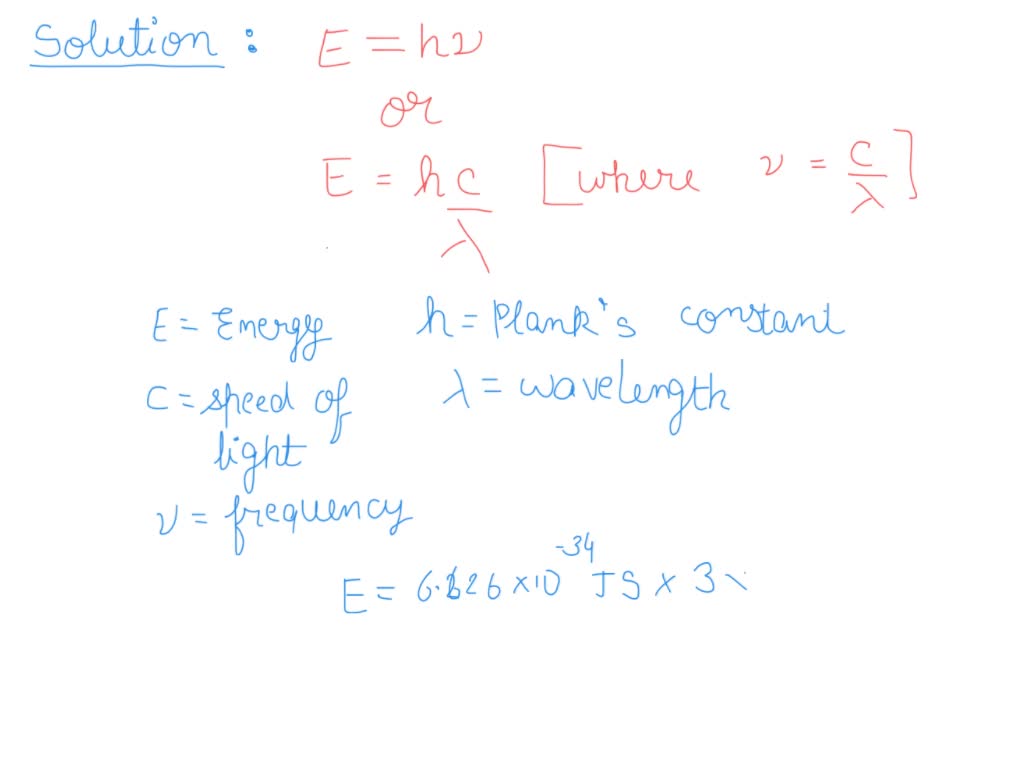 Solution : E = hν
or
E = hc/λ [where ν = c/λ]
E = Energy h = Plank's constant
C = speed of light λ = wavelength
ν = frequency
E = 6.626 × 10⁻³⁴ JS × 3 ×